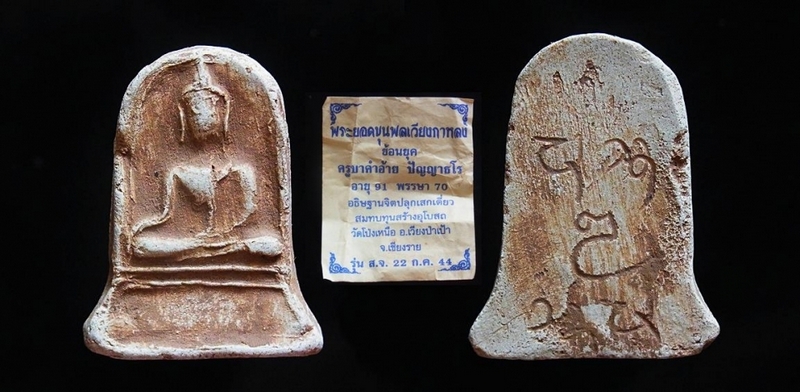 พระยอดขุนพลเวียงกาหลง
ย้อนยุค
ครูบาคำอ้าย ปัญญาธโร
อายุ 91 พรรษา 70
อธิษฐานจิตปลุกเสกเดี่ยว
สมทบทุนสร้างอุโบสถ
วัดโป่งเหนือ อ.เวียงป่าเป้า
จ.เชียงราย
รุ่น ส.จ. 22 ก.ค. 44